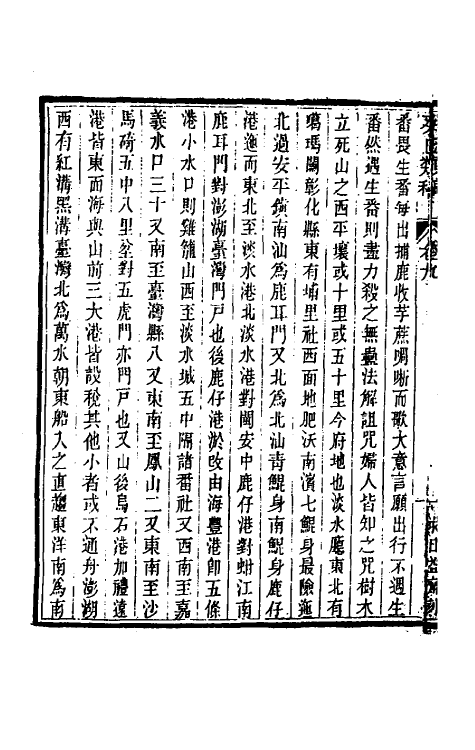 番畏生番每出捕鹿收芋蔗啁哳而歌大意言願出行不遇生
番然遇生番則盡力殺之無蠱法解詛咒婦人皆知之咒樹木
立死山之西平壤或十里或五十里今府地也淡水廳東北有
噶瑪闌彰化縣東有埔里社西面地肥沃南濱七鯤身最險迤
北過安平鎮南汕爲鹿耳門又北爲北汕靑鯤身南鯤身鹿仔
港迤而東北至淡水港北淡水港對閩安中鹿仔港對蚶江南
鹿耳門對澎湖臺灣門戶也後鹿仔港淤改由海豐港卽五條
港小水口則雞籠山西至淡水城五中隔諸番社又西南至嘉
義水口三十又南至臺灣縣八又東南至鳳山二又東南至沙
馬碕五中八里坌對五虎門亦門戶也又山後烏石港加禮遠
港皆東面海與山前三大港皆設稅其他小者或不通舟澎湖
西有紅溝黑溝臺灣北爲萬水朝東船入之直趨東洋南爲南
癸巳類稿 卷九